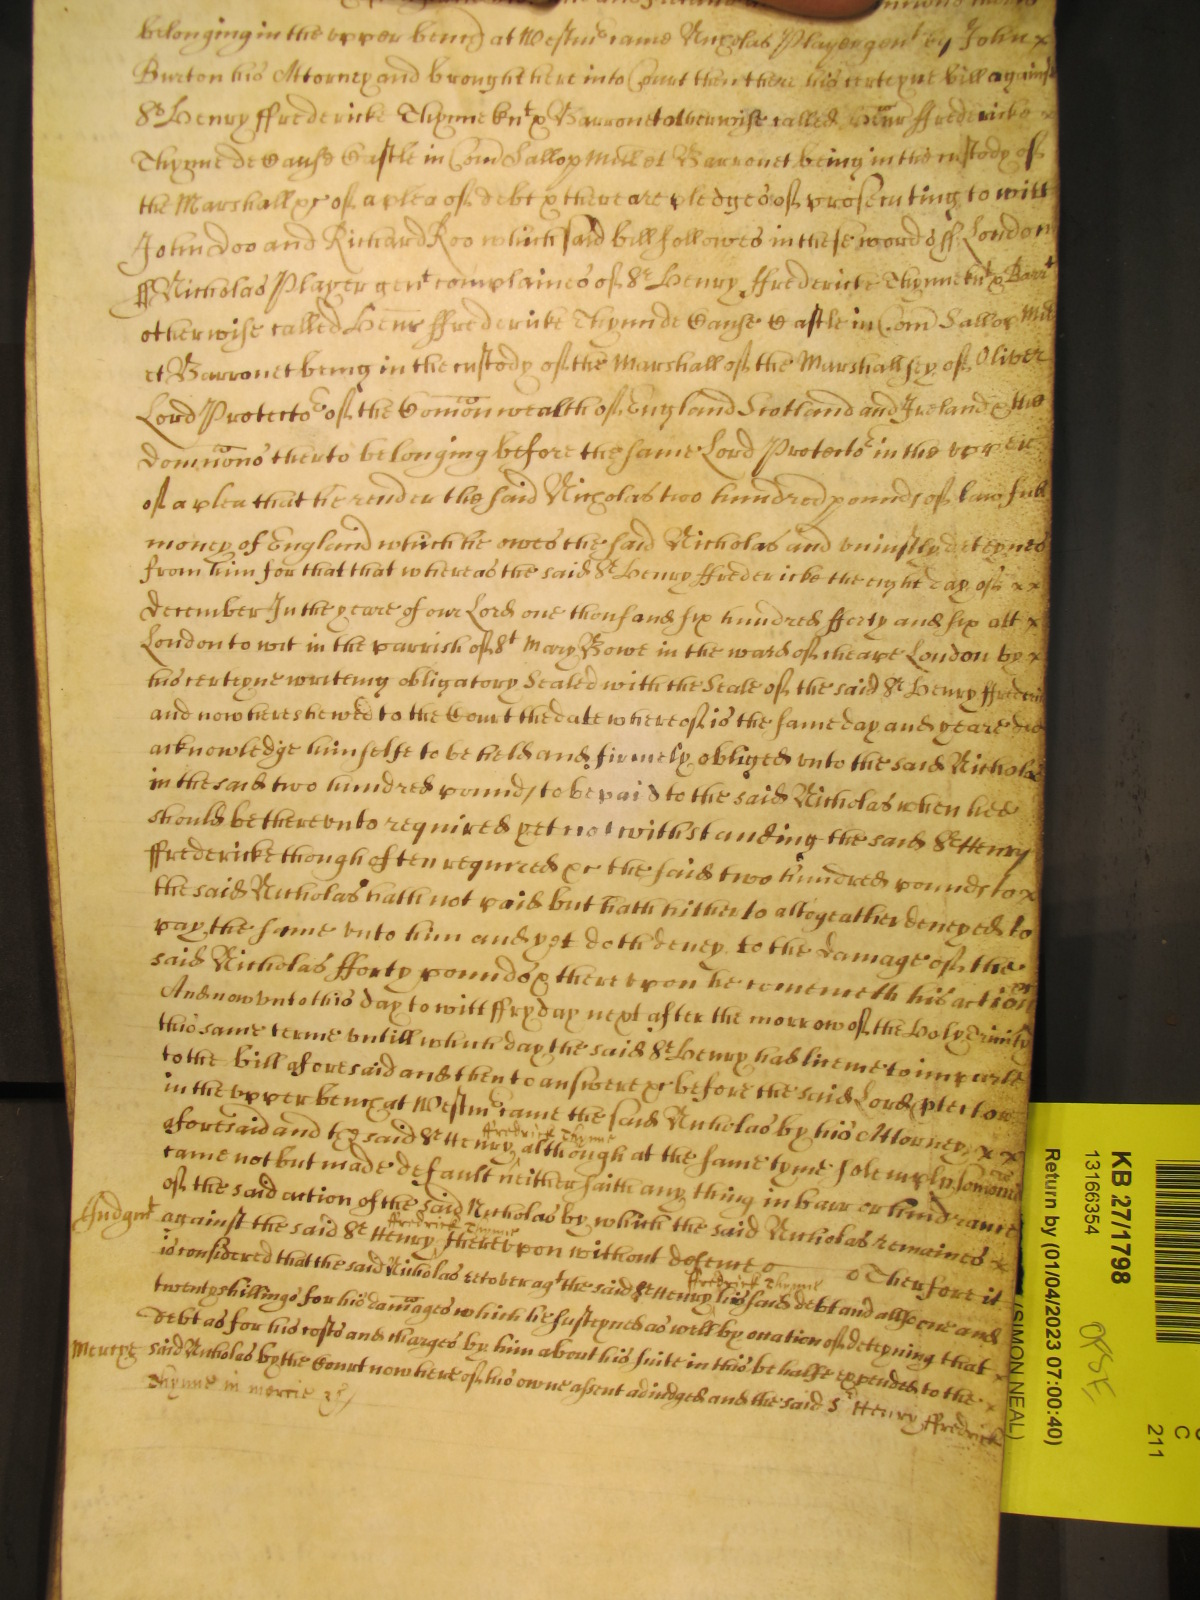 belonging in the upper bench at Westmr came Nicholas Player gent by John x
Burton his Attorney and brought here into Court then there his certeyne bill against
Sr Henry ffredericke Thynne knt & Barronet otherwise called Henr ffredericke x
Thynne de Cause Castle in Com Sallop Milit et Barronet being in the custody of
the Marshall &c of a plea of debt & there are pledges of prosecuting to witt
John Doo and Richard Roo which said bill followes in these words ss London
ss Nicholas Player gent complaines of Sr Henry ffredericke Thynne knt & Barrt
otherwise called Henr ffredericke Thynn de Cause Castle in Com Sallop Milit
et Barronet being in the custody of the Marshall of the Marshallsey of Oliver
Lord Protector of the Comonwealth of England Scotland and Ireland & the
domnions therto belonging before the same Lord Protector in the upper
of a plea that he render the said Nicholas two hundred pounds of lawfull
money of England which he owes the said Nicholas and uniustly deteynes
from him for that that whereas the said Sr Henry ffredericke the eight day of x x
december In the yeare of our Lord one thousand six hundred fforty and six att x
London to wit in the parrish of St Mary Bowe in the ward of cheape London by x
his certeyne writeing obligatory Sealed with the Seale of the said Sr Henry ffrederick
and now here shewed to the Court the date whereof is the same day and yeare did
acknowledge himselfe to be held and firmely obliged unto the said Nicholas
in the said two hundred pounds to be paid to the said Nicholas when hee
should be thereunto required yet notwithstanding the said Sr Henry
ffredericke though often required &c the said two hundred pounds to x
the said Nicholas hath not paid but hath hitherto altogeather denyed to
pay the same unto him and yet doth deney to the damage of the
said Nicholas fforty pounds & thereupon he comenceth his action &c
And now unto this day to witt ffryday next after the morrow of the Holy Trinity
this same terme untill which day the said Sr Henry has licence to imparle
to the bill aforesaid and then to answere &c before the said Lord Ptector
in the upper bench at Westmr came the said Nicholas by his Attorney x x
aforesaid and the said Sr Henry ffredrick Thynne although at the same tyme solemnly somoned
came not but made default neither saith any thing in barr or hindrance
of the said action of the said Nicholas by which the said Nicholas remaines x
Judgmt against the said Sr Henry ffredrick Thynne thereupon without defence Therfore it
is considered that the said Nicholas recover agt the said Sr Henry ffredrick Thynne his said debt and allsoe one and
twenty shillings for his damages which he susteyned as well by ocation of deteyning that x
debt as for his costs and charges by him about his suite in this behalfe expended to the x
Mercye said Nicholas by the Court now here of his owne assent adiudged and the said Sr Henry ffredrick
Thynne in mercie &c
KB 27/1798
131663354
Return by (01/04/2023 07:00:40)
(SIMON NEAL)
C
211